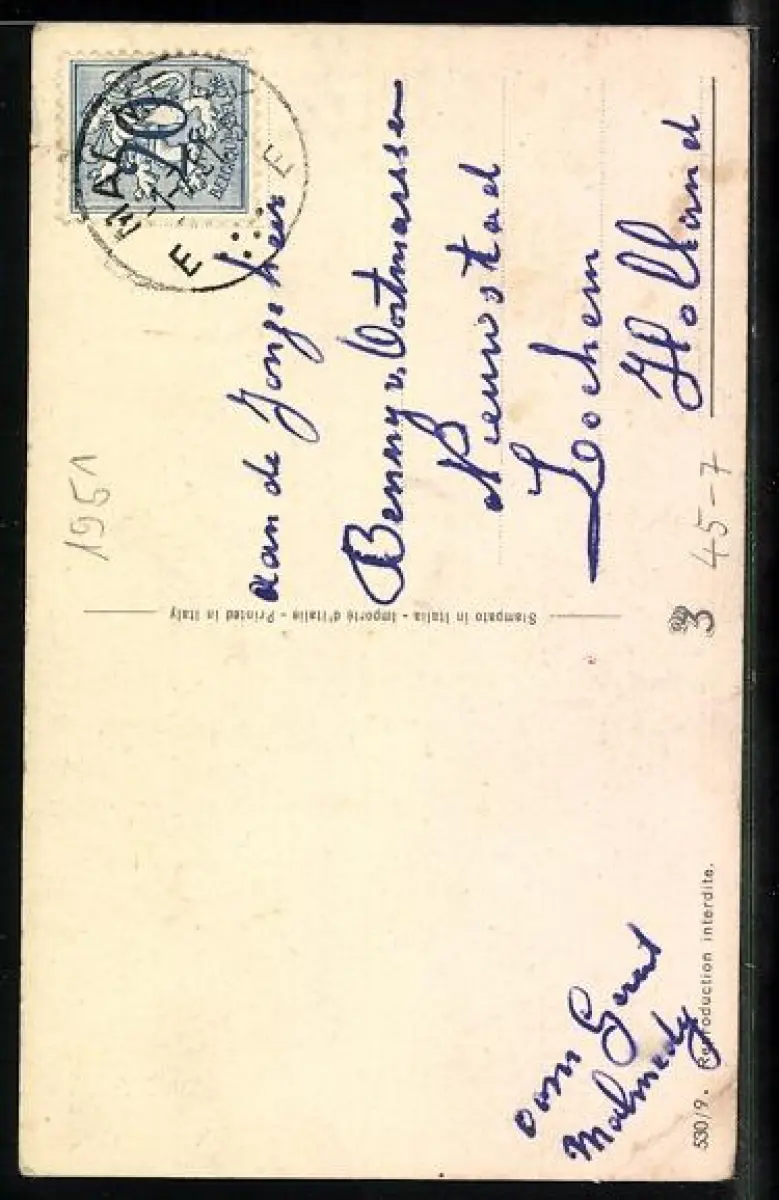 70
MALMEDY
E E
1951
aan de Jonge heer
Benny v. Oortmarssen
Nieuwstad
Lochem
Holland
45-7
3
Stampato in Italia - Importé d'Italie - Printed in Italy
oom Gerat
Malmedy
530/9. Reproduction interdite.